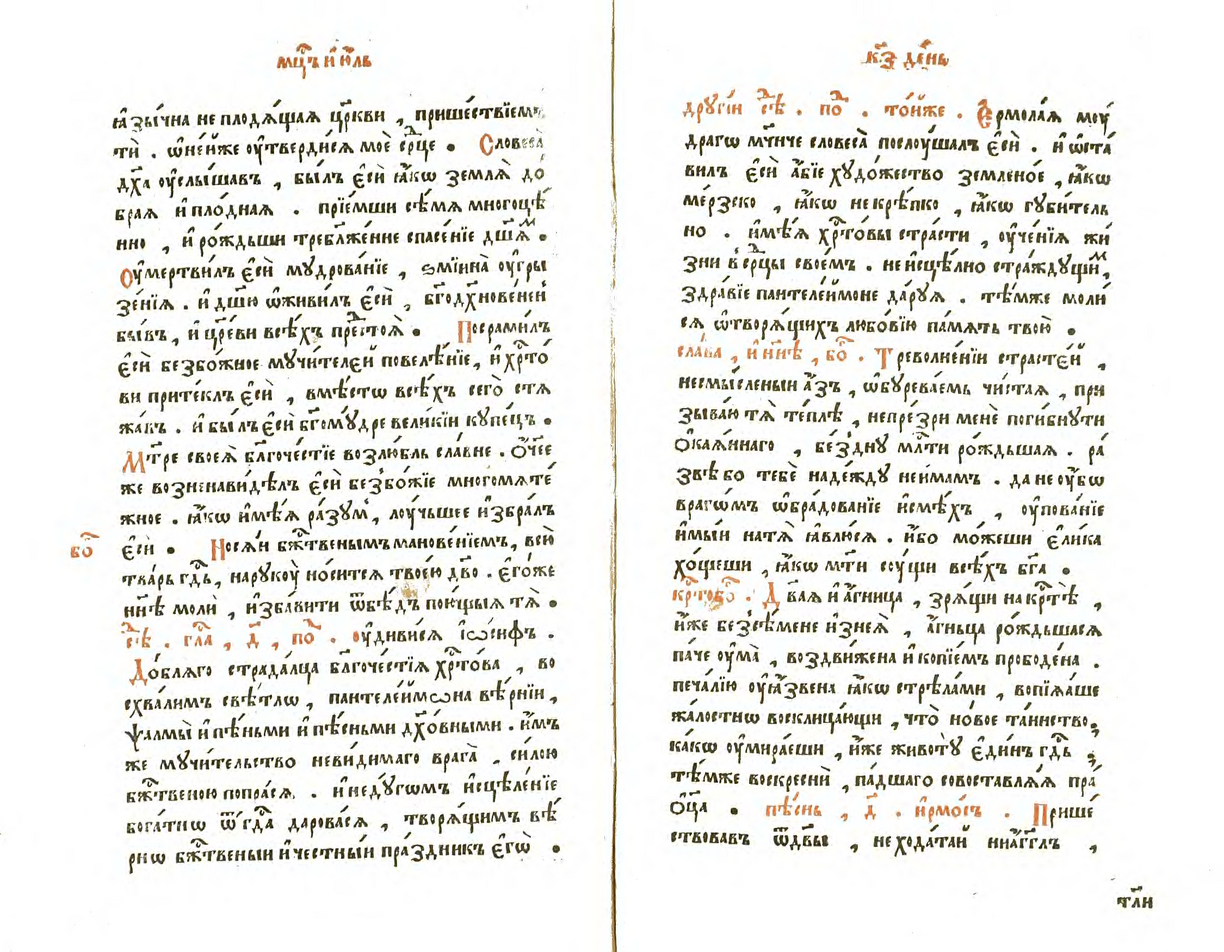 мц҃ъ и҆ ю҆́ль
ꙗ҆зы́чна не плодѧ́щаѧ цр҃кви , прише́ствїемъ
тѝ . ѡ҆не́йже ᲂу҆тверди́сѧ моѐ ср҃це • Словеса̀
дх҃а ᲂу҆слы́шавъ , бы́лъ є҆сѝ ꙗ҆́кѡ землѧ̀ до
брая и҆ пло́дная . прїе́мши сѣ́мѧ многоцѣ́
нно , и҆ ро́ждьши требл҃же́ние спасе́нїе дш҃а́мъ •
Оу҆мертви́лъ є҆сѝ мꙋдрова́нїе , ѕмїи́на ᲂу҆гры
зе́нїѧ . и҆ дш҃ю ѡ҆живи́лъ є҆сѝ , бг҃одхнове́нен
бы́въ , и҆ цр҃еви всѣ́хъ предстоѧ̀ • Посрами́лъ
є҆сѝ безбо́жное мꙋчи́телей повелѣ́нїе , и҆ хрⷭ҇то́
ви прите́клъ є҆сѝ , вмѣ́стѡ всѣ́хъ сего̀ стѧ
жа́въ . и҆ бы́лъ є҆сѝ бг҃омꙋ́дре вели́кїи кꙋпе́цъ •
Мт҃ре своеѧ̀ бл҃гоче́стїе возлю́бль сла́вне . О҆́чее
же возненави́дѣлъ є҆сѝ безбо́жїе многомѧте́
жное . ꙗ҆́кѡ и҆мѣ́ѧ ра́зꙋмъ , лꙋ́чьшее и҆збра́лъ
бо҃
є҆сѝ • Носѧ́и бжⷭ҇твенымъ манове́нїемъ , всю̀
тва́рь гдⷭ҇ь , на рꙋкоу̀ но́ситсѧ твое́ю дв҃о . є҆го́же
нн҃ѣ молѝ , и҆зба́вити ѿ бѣ́дъ пою́щыѧ тѧ̀ •
сѣⷣ , гла́ , д҃ , поⷣ . ᲂу҆диви́сѧ і҆ѡ́сифъ .
До́бляго страда́лца бл҃гоче́стїѧ хрⷭ҇то́ва , во
схва́лимъ свѣ́тлѡ , пантелеи́мѡна вѣ́рнїи ,
ѱалмы̀ и҆ пѣ́ньми и҆ пѣ́сньми дх҃о́вными . и҆́мъ
же мꙋчи́тельство неви́димаго врага̀ , си́лою
бжⷭ҇твеною попра́сѧ . и҆ недꙋ́гѡмъ и҆сцѣле́нїе
бога́тнѡ ѿ гдⷭ҇а дарова́сѧ , творѧ́щимъ вѣ́
рнѡ бжⷭ҇твеныи и҆ че́стныи пра́здникъ є҆гѡ̀ •
к҃з де́нь
дрꙋгі́и сѣⷣ . поⷣ . то́йже . Е҆рмола́ѧ моу́
драго мч҃нче словеса̀ послоу́шалъ є҆сѝ . и҆ ѡ҆ста́
вилъ є҆сѝ а҆́бїе хꙋдо́жество земле́ное , ꙗ҆́кѡ
ме́рзско , ꙗ҆́кѡ не крѣ́пко , ꙗ҆́кѡ гꙋби́тель
но . и҆мѣ́ѧ хрⷭ҇то́вы стра́сти , ᲂу҆че́нїѧ жи́
зни в ср҃цы свое́мъ . неисцѣ́лно стра́ждꙋщимъ
здра́вїе пантелеи́моне да́рꙋѧ . тѣ́мже моли
сѧ ѡ҆ творѧ́щихъ любо́вїю па́мять твою̀ •
сла́ва , и҆ нн҃ѣ , боⷣ . Треволне́нїи страсте́й ,
несмы́сленыи а҆́зъ , ѡ҆бꙋрева́емь чи́стая , при
зыва́ю тѧ̀ те́плѣ , не пре́зри менѐ поги́бнꙋти
О҆кая́ннаго , бе́зднꙋ млⷭ҇ти ро́ждьшая . ра́
звѣ бо тебѐ наде́ждꙋ не и҆́мамъ . да не ᲂу҆́бѡ
врагѡ́мъ ѡ҆бра́дованїе и҆ смѣ́хъ , ᲂу҆пова́нїе
и҆мы́и на тѧ̀ ꙗ҆влю́сѧ . и҆́бо мо́жеши є҆ли́ка
хо́щеши , ꙗ҆́кѡ мт҃и соу́щи всѣ́хъ бг҃а •
крⷭ҇тобоⷣ . Двая и҆ а҆́гница , зрѧ́щи на крⷭ҇тѣ̀ ,
и҆́же без̾ сѣ́мене и҆з неѧ̀ , а҆́гньца ро́ждьшасѧ
па́че ᲂу҆ма̀ , воздви́жена и҆ копїе́мъ прободе́на .
печа́лїю ᲂу҆ꙗ҆́звена ꙗ҆́кѡ стрѣ́лами , вопїѧ́ше
жа́лостнѡ восклица́ющи , что̀ но́вое та́инство ,
ка́кѡ ᲂу҆мира́еши , и҆́же животꙋ̀ є҆ди́нъ гдⷭ҇ь ;
тѣ́мже воскреснѝ , па́дшаго совоставлѧ́ѧ пра́
о҆ц҃а • пѣ́снь , д҃ . и҆рмо́съ . Прише́
ствовавъ ѿ дв҃ы , не хода́таи ни а҆́гг҃лъ ,
тлⷭ҇и